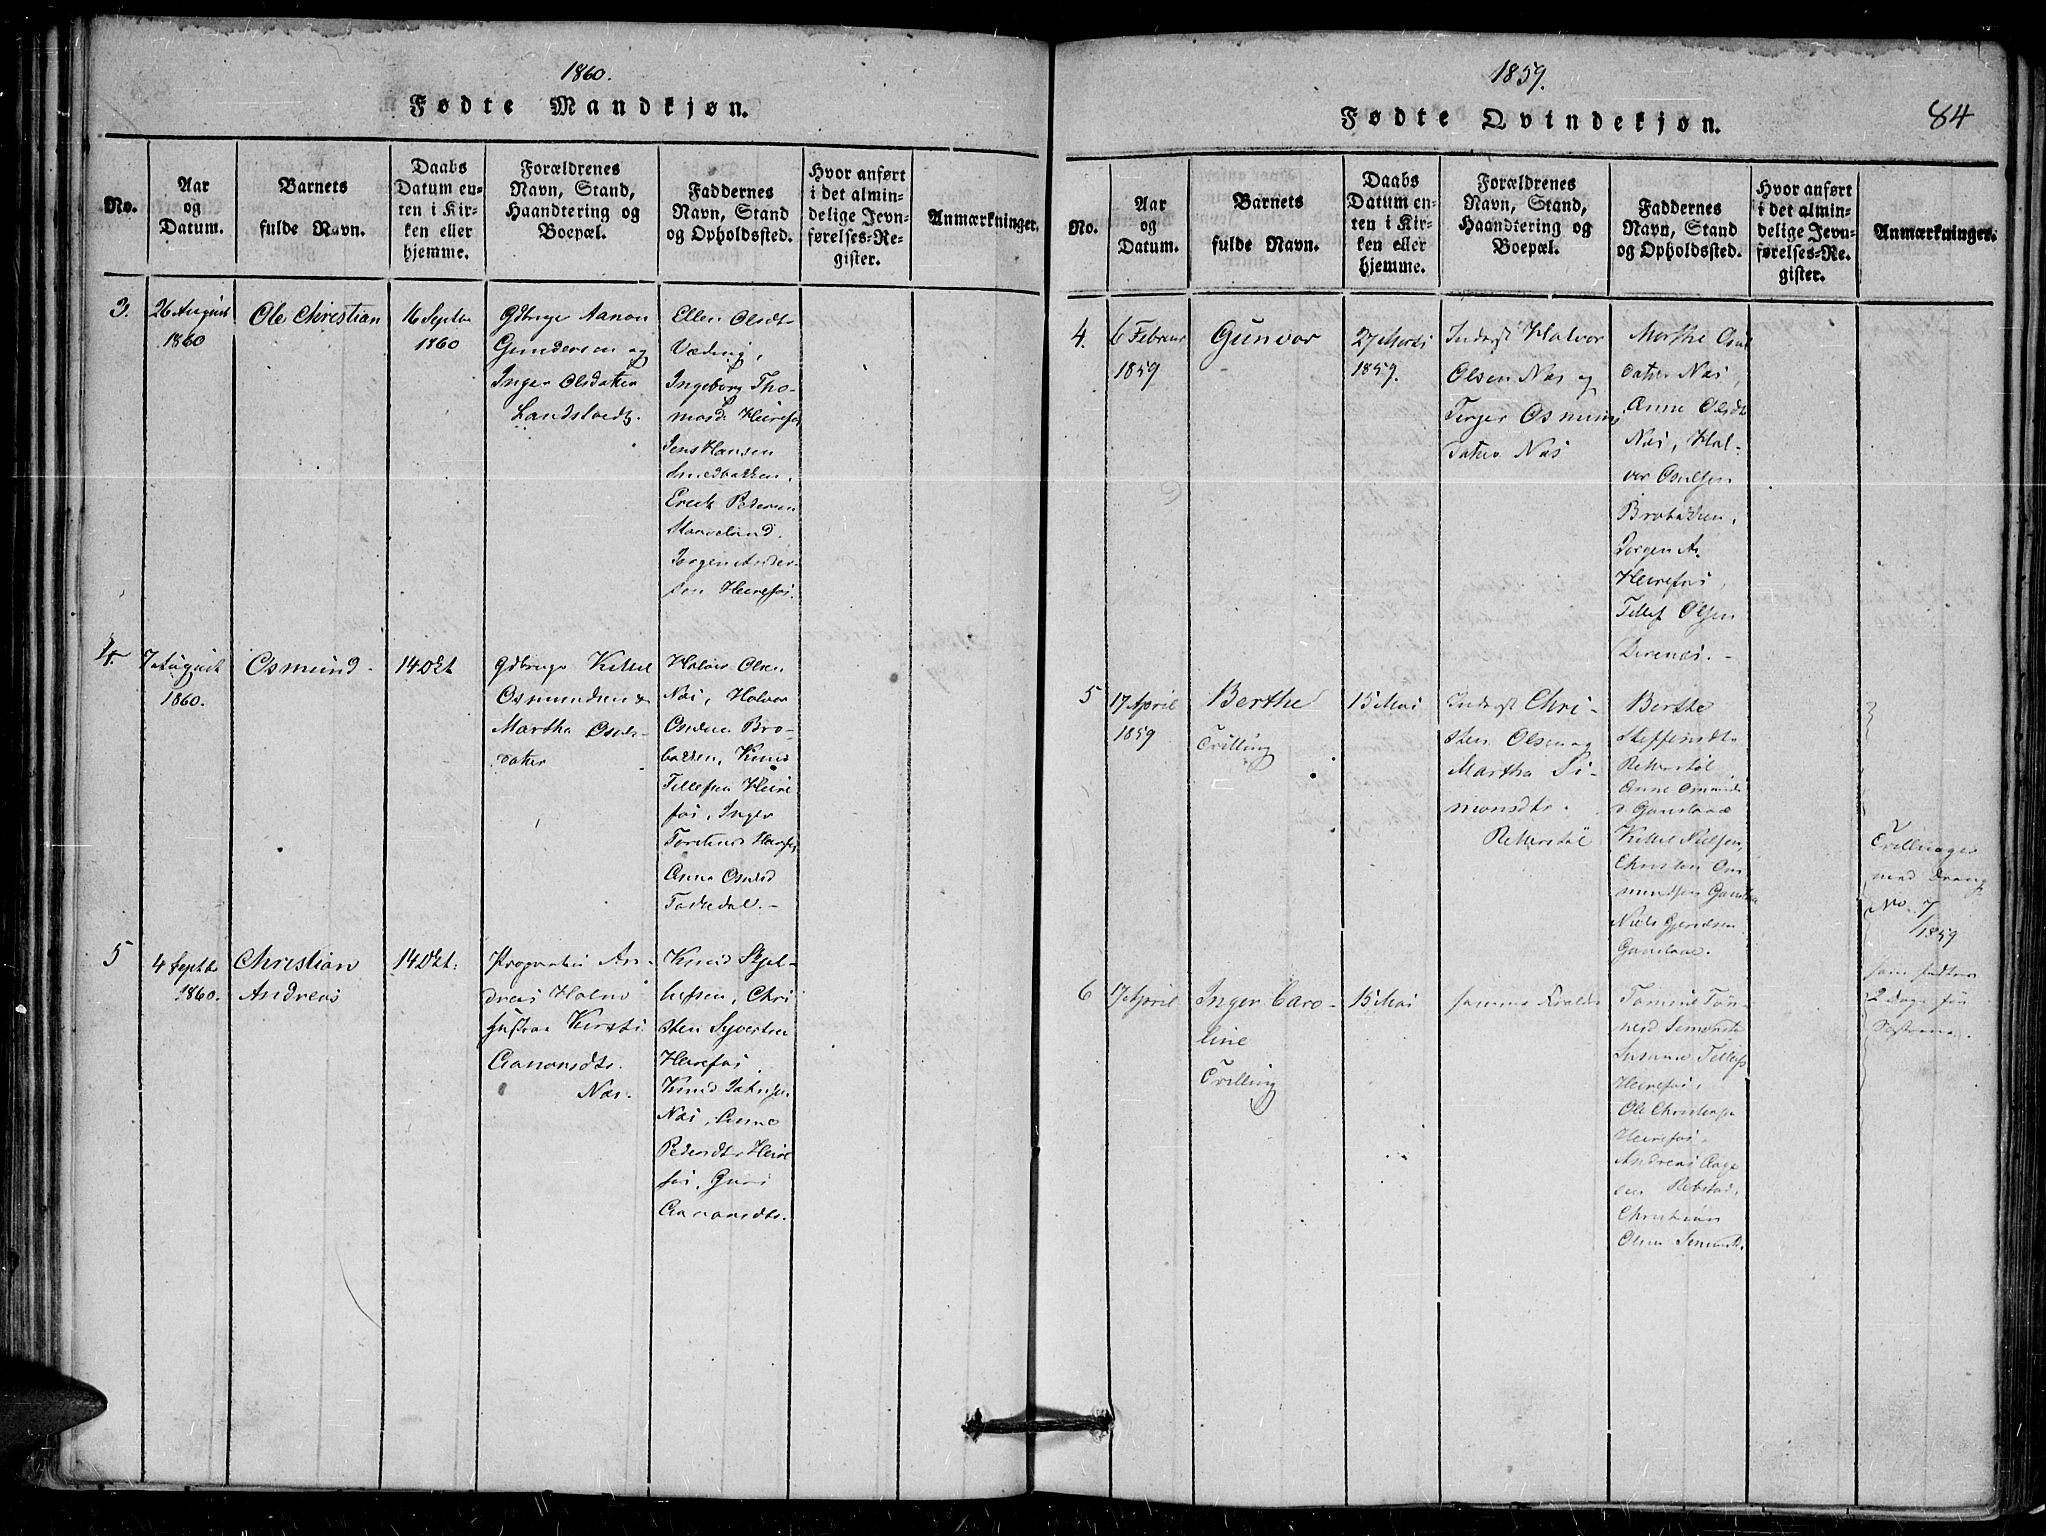 1860.
Fødte Mandkjøn.
No.
Aar
og
Datum.
Barnets
fulde Navn.
Daabs
Datum en-
ten i Kir-
ken eller
hjemme.
Forældrenes
Navn, Stand,
Haandtering og
Boepæl.
Faddernes
Navn, Stand
og Opholdssted.
Hvor anført
i det almin-
delige Jevn-
førelses-Re-
gister.
Anmærkninger.
3.
26 August
1860
Ole Christian
16 Septbr
1860
Gdbruger Aanon
Gundersen og
Inger Olsdatter
Landstvedt.
Ellen Olsdtr
Væding,
Ingeborg Tho-
masd. Heirefos
Jens Hansen
Smedbakken,
Erick Pedersen
Jørgen Ander-
sen Heirefos.
4.
7 August
1860.
Osmund
14 Okt
Gdbruger Kittel
Osmundsen &
Martha Osuls-
datter
Halvor Olsen
Nas, Halvor
Osulsen Bro-
bakken, Knud
Tellefsen Heire-
fos, Inger
Anne Osulsd
5
4 Septbr
1860.
Christian
Andreas
14 Okt.
An-
dreas Holm
Hustrue Kirsti
Aanonsdtr.
Nas.
Knud Skjel-
lefsen, Chri
sten Syvertsen
Heirefos,
Knud
Nas, Anne
Pedersdtr Heire
fos, Guri
Aanonsdtr.
1859.
Fødte Qvindekjøn.
84
No.
Aar
og
Datum.
Barnets
fulde Navn.
Daabs
Datum en-
ten i Kir-
ken eller
hjemme.
Forældrenes
Navn, Stand,
Haandtering og
Boepæl.
Faddernes
Navn, Stand
og Opholdssted.
Hvor anført
i det almin-
delige Jevn-
førelses-Re-
gister.
Anmærkninger.
4.
6 Februar
1859
Gunvor
27 Marts
1859.
Inderst Halvor
Olsen Nas og
Terjer Osmunds
datter Nas
Marthe Osul
datter Nas,
Anne Olsdtr
Nas, Hal-
vor Osulsen
Brobakken,
Jørgen A.
Heirefos,
Tellef Olsen
5
17 April
1859
Berthe
Trilling
15 Mai
Inderst Chri-
sten Olsen og
Martha Si-
monsdtr.
Retterstøl
Berthe
Steffensdtr
Retterstøl
Anne Osmunds
d Ganslaae
Kittel Nielsen,
Christen Os-
mundsen Ganslaa
Niels Gjerulsen
Ganslaae.
Trillinger
med Dreng
No. 7/1859
som fødtes
2 Dage før
Søstrene.
6
17 April
Inger Caro-
line
Trilling
15 Mai
samme Forældre
Tomine Tøn-
nesd
Susanne Tellefs
Heirefos,
Ole Christensen
Heirefos,
Andreas Aage
sen
Christian
Olsen